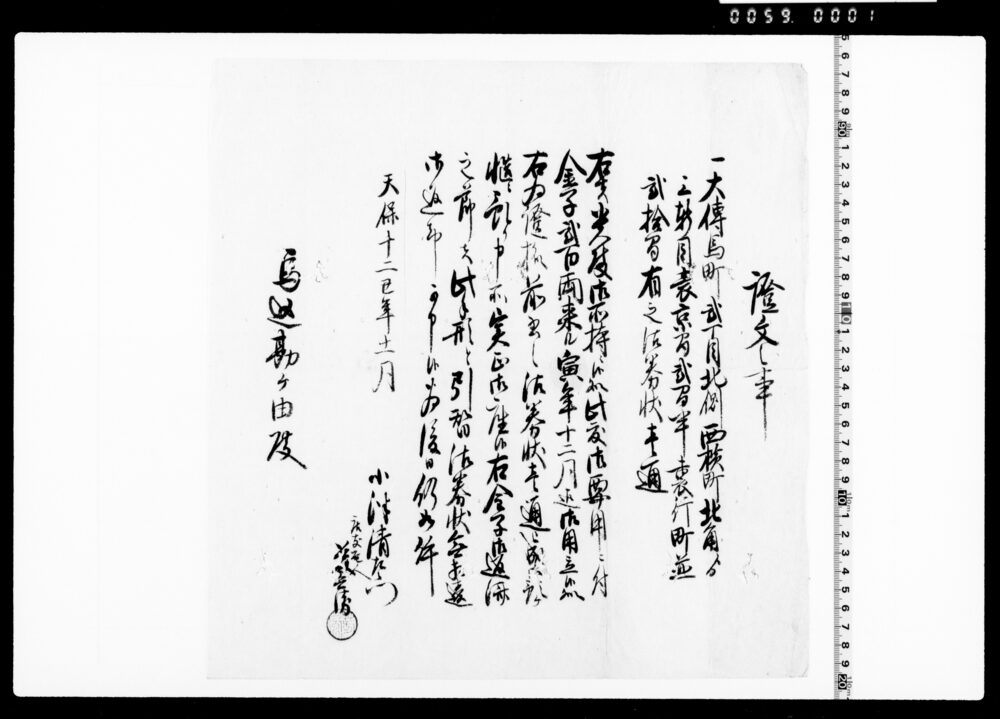 0059. 0001
證文之事
一大傳馬町貳丁目北側西横町北角ゟ
三軒目表京間貳間半裏行町並
貳拾間有之沽券状壱通
右者貴殿御所持ニ候処此度御要用ニ付
金子貳百両来ル寅年十二月迄御用立候処
右為證拠前書之沽券状壱通
慥ニ預り申所実正ニ御座候右金子御返済
之節者此手形と引替沽券状無相違
御返却可申候為後日仍如件
天保十二巳年十二月
小津清左衛門
馬込勘ケ由殿